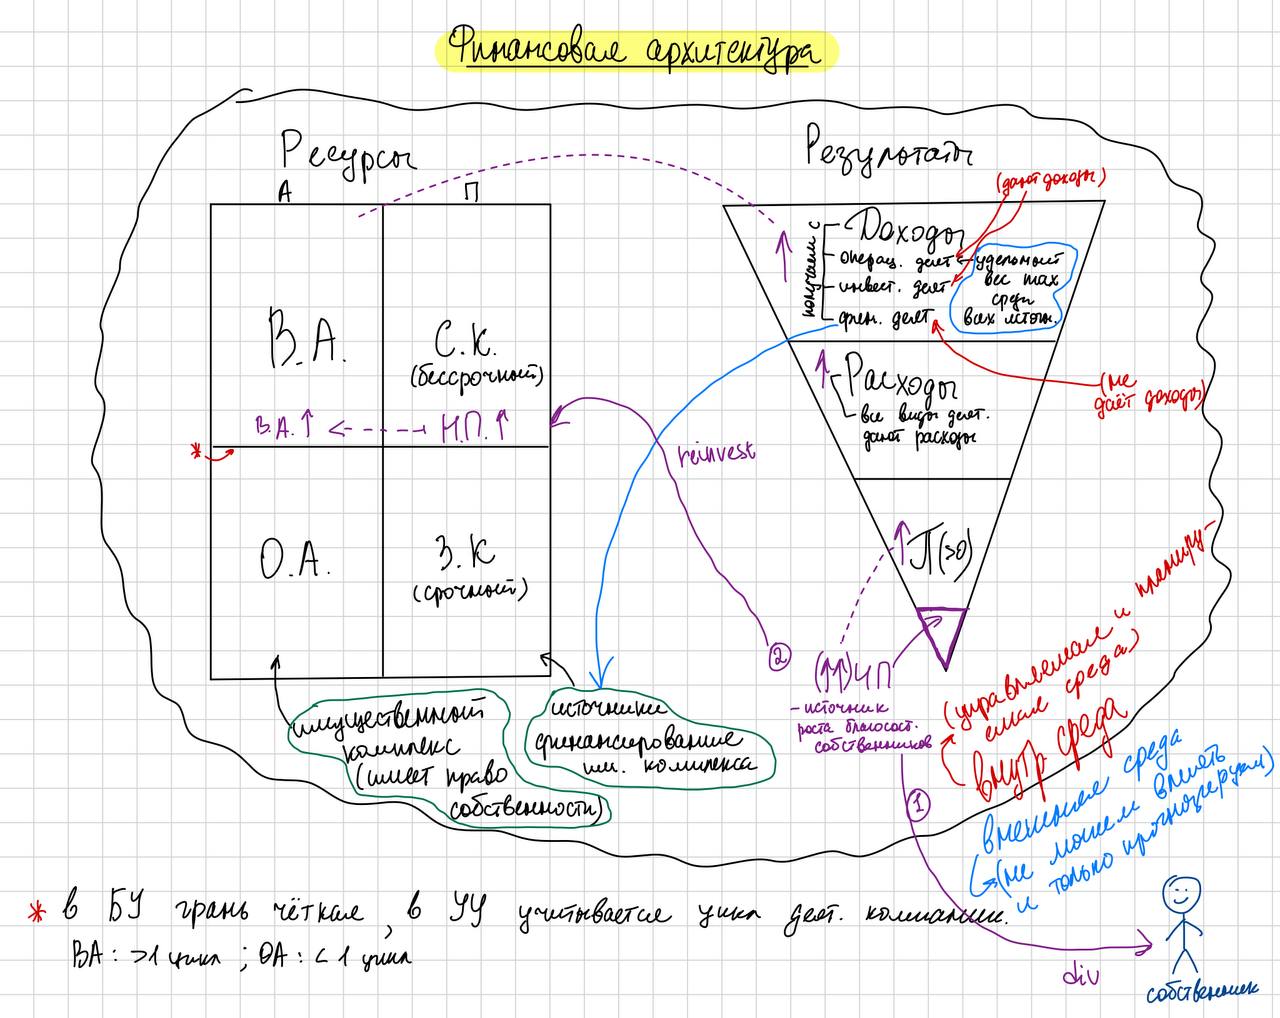 Финансовая архитектура
Ресурсы
А
П
В.А.
С.К.
(бессрочный)
В.А.↑ <---- Н.П.↑
*
О.А.
З.К
(срочный)
имущественный
комплекс
(имеет право
собственности)
источники
финансирование
им. комплекса
reinvest
Результаты
(дают доходы)
получаем с
Доходы
операц. деят
инвест. деят
фин. деят
удельный
вес max
среди
всех источн.
Расходы
все виды деят.
дают расходы
(не
даёт доходы)
П(>0)
2
(↑↑)ЧП
- источник
роста благосост.
собственников
1
(управляемая и планиру-
емая среда)
внутр среда
внешняя среда
(не можем влиять
и только прогнозируем)
div
собственник
* в БУ грань чёткая, в УУ учитывается цикл деят. компании.
ВА: >1 цикл ; ОА: < 1 цикл